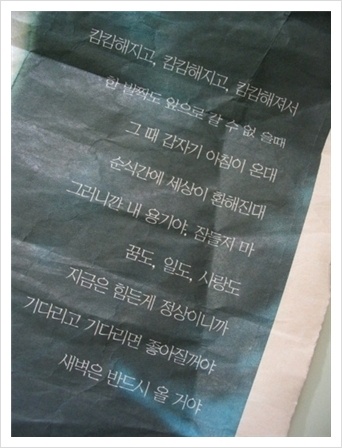 캄캄해지고, 캄캄해지고, 캄캄해져서
한 발짝도 앞으로 갈 수 없 을때
그 때 갑자기 아침이 온대
순식간에 세상이 환해진대
그러니깐 내 용기야, 잠들지 마
꿈도, 일도, 사랑도
지금은 힘든게 정상이니까
기다리고 기다리면 좋아질꺼야
새벽은 반드시 올 거야